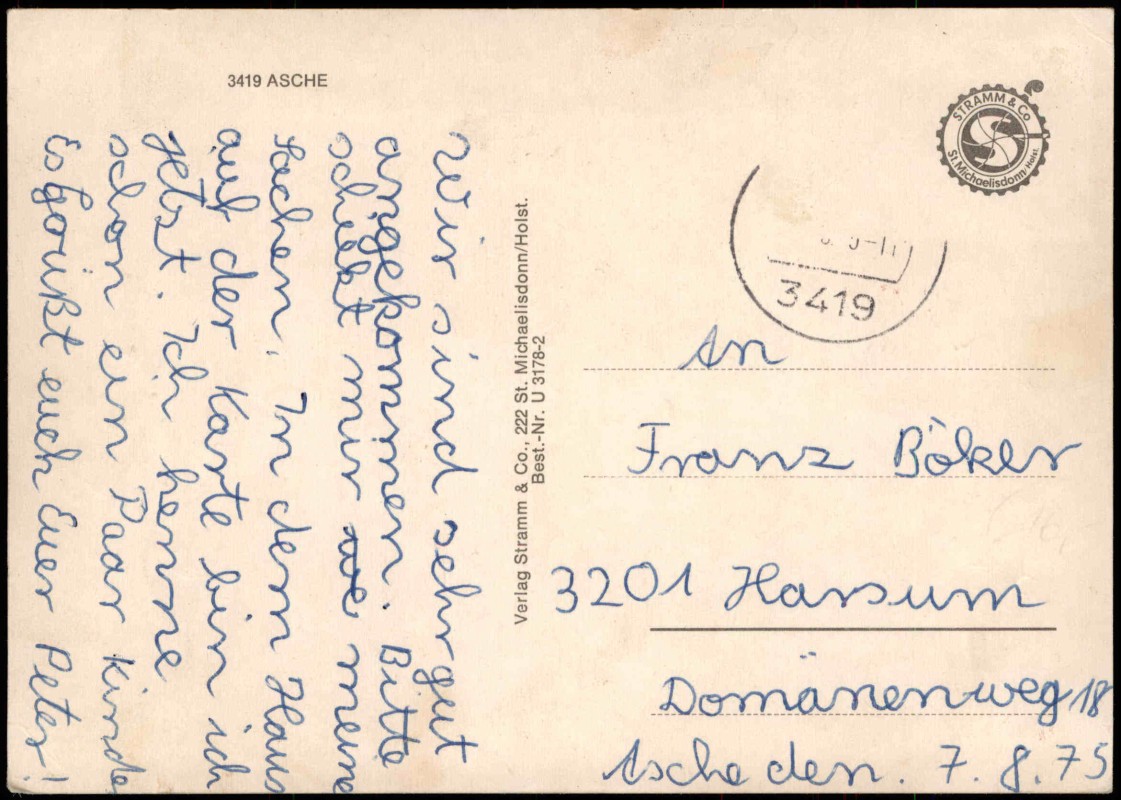 3419 ASCHE
Wir sind sehr gut
angekommen. Bitte
schickt mir meine
Sachen. In dem Haus
auf der Karte bin ich
jetzt. Ich kenne
schon ein Paar kinde
Es Grüßt euch Euer Peter!
Verlag Stramm & Co., 222 St. Michaelisdonn/Holst.
Best.-Nr. U 3178-2
STRAMM & Co
St. Michaelisdonn/Holst.
3419
An
Franz Böker
3201 Harsum
Domänenweg 18
Asche den. 7. 8. 75